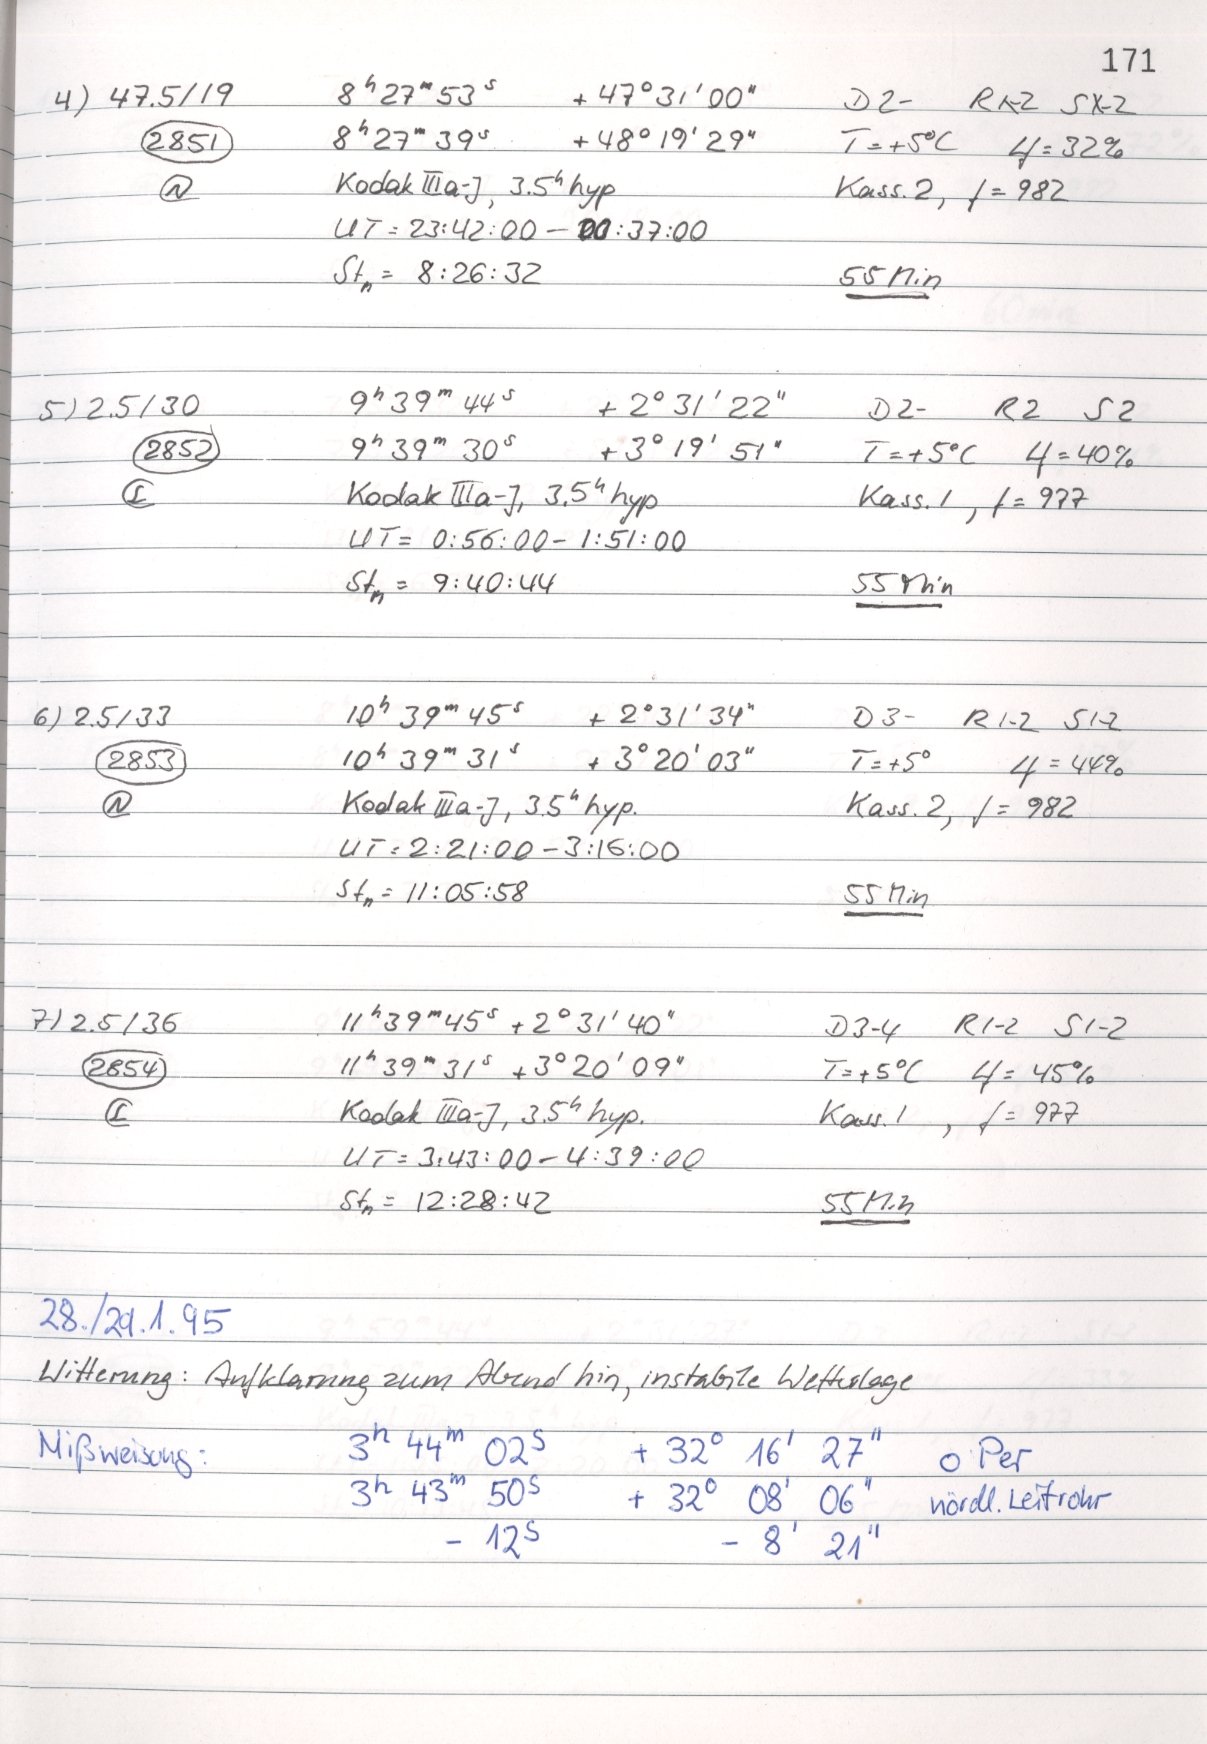 171
4) 47.5/19 8h 27m 53s +47° 31' 00" D2- R1-2 S1-2
2851 8h 27m 39s +48° 19' 29" T=+5°C φ=32%
N Kodak IIIa-J, 3.5h hyp Kass. 2, f=982
UT = 23:42:00 – 00:37:00
Stn = 8:26:32 55 Min
5) 2.5/30 9h 39m 44s +2° 31' 22" D2- R2 S2
2852 9h 39m 30s +3° 19' 51" T=+5°C φ=40%
Kodak IIIa-J, 3.5h hyp Kass. 1, f=977
UT = 0:56:00 – 1:51:00
Stn = 9:40:44 55 Min
6) 2.5/33 10h 39m 45s +2° 31' 34" D3- R1-2 S1-2
2853 10h 39m 31s +3° 20' 03" T=+5° φ=44%
N Kodak IIIa-J, 3.5h hyp. Kass. 2, f=982
UT = 2:21:00 – 3:16:00
Stn = 11:05:58 55 Min
7) 2.5/36 11h 39m 45s +2° 31' 40" D3-4 R1-2 S1-2
2854 11h 39m 31s +3° 20' 09" T=+5°C φ=45%
Kodak IIIa-J, 3.5h hyp. Kass. 1, f=977
UT = 3:43:00 – 4:39:00
Stn = 12:28:42 55 Min
28./29.1.95
Witterung: Aufklarung zum Abend hin, instabile Wetterlage
Mißweisung: 3h 44m 02s +32° 16' 27" o Per
3h 43m 50s +32° 08' 06" nördl. Leitrohr
- 12s - 8' 21"